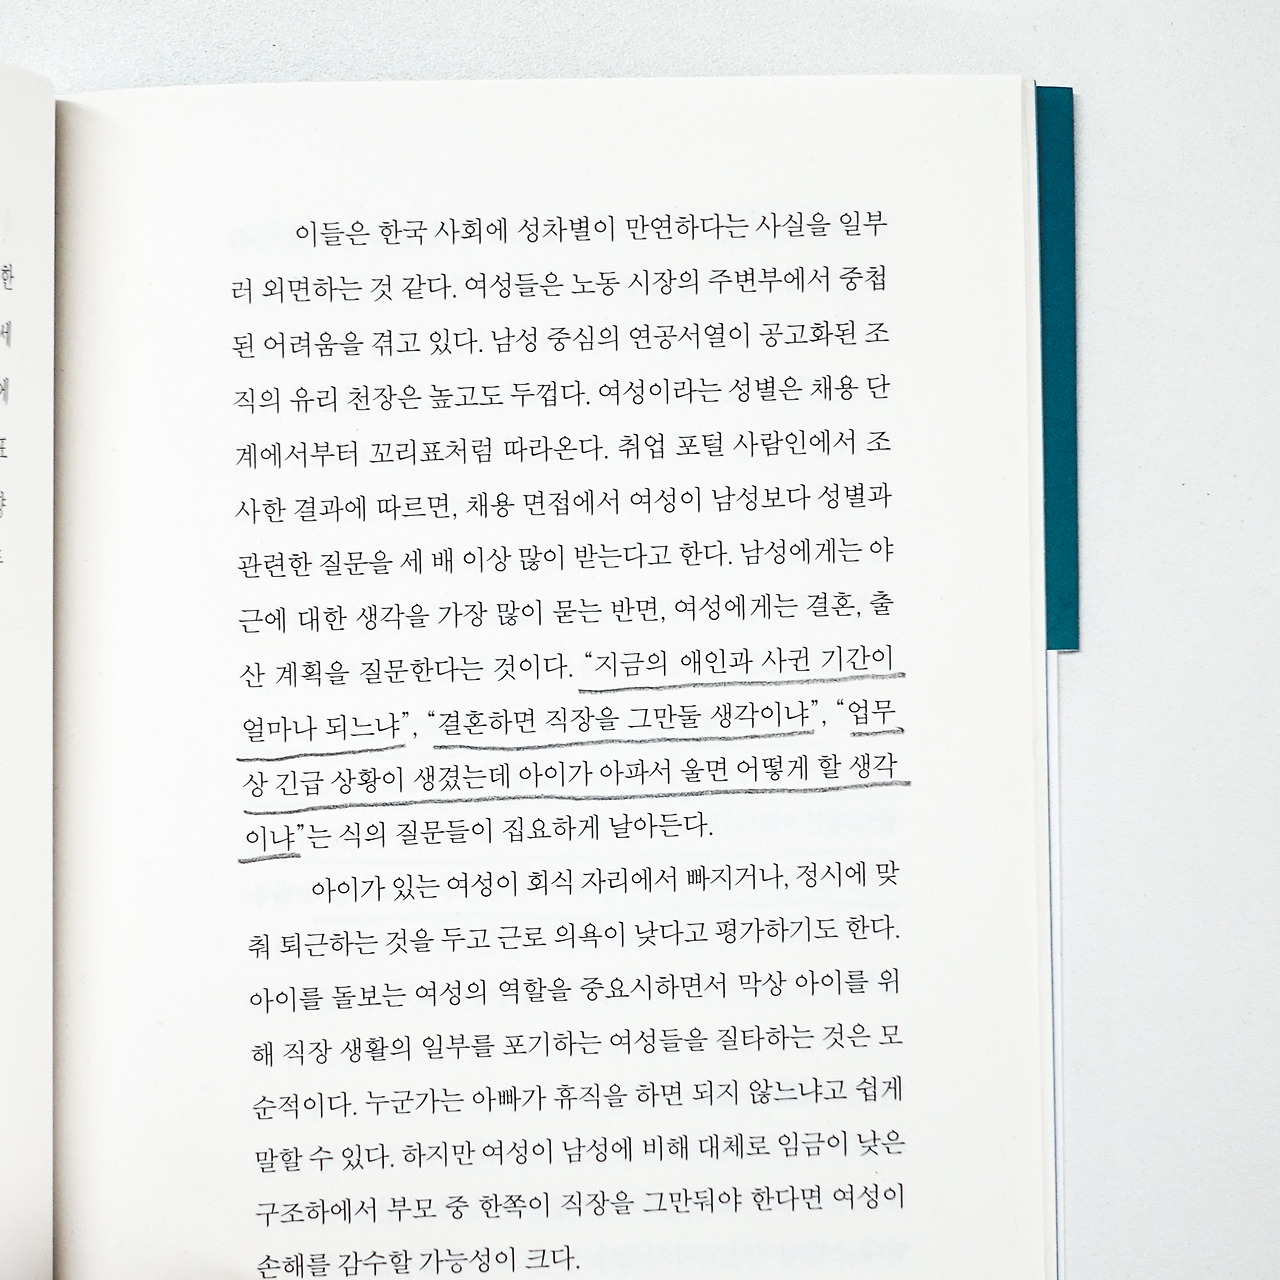 한
세
에
이들은 한국 사회에 성차별이 만연하다는 사실을 일부
러 외면하는 것 같다. 여성들은 노동 시장의 주변부에서 중첩
된 어려움을 겪고 있다. 남성 중심의 연공서열이 공고화된 조
직의 유리 천장은 높고도 두껍다. 여성이라는 성별은 채용 단
계에서부터 꼬리표처럼 따라온다. 취업 포털 사람인에서 조
사한 결과에 따르면, 채용 면접에서 여성이 남성보다 성별과
관련한 질문을 세 배 이상 많이 받는다고 한다. 남성에게는 야
근에 대한 생각을 가장 많이 묻는 반면, 여성에게는 결혼, 출
산 계획을 질문한다는 것이다. “지금의 애인과 사귄 기간이
얼마나 되느냐”, “결혼하면 직장을 그만둘 생각이냐”, “업무
상 긴급 상황이 생겼는데 아이가 아파서 울면 어떻게 할 생각
이냐”는 식의 질문들이 집요하게 날아든다.
아이가 있는 여성이 회식 자리에서 빠지거나, 정시에 맞
춰 퇴근하는 것을 두고 근로 의욕이 낮다고 평가하기도 한다.
아이를 돌보는 여성의 역할을 중요시하면서 막상 아이를 위
해 직장 생활의 일부를 포기하는 여성들을 질타하는 것은 모
순적이다. 누군가는 아빠가 휴직을 하면 되지 않느냐고 쉽게
말할 수 있다. 하지만 여성이 남성에 비해 대체로 임금이 낮은
구조하에서 부모 중 한쪽이 직장을 그만둬야 한다면 여성이
손해를 감수할 가능성이 크다.